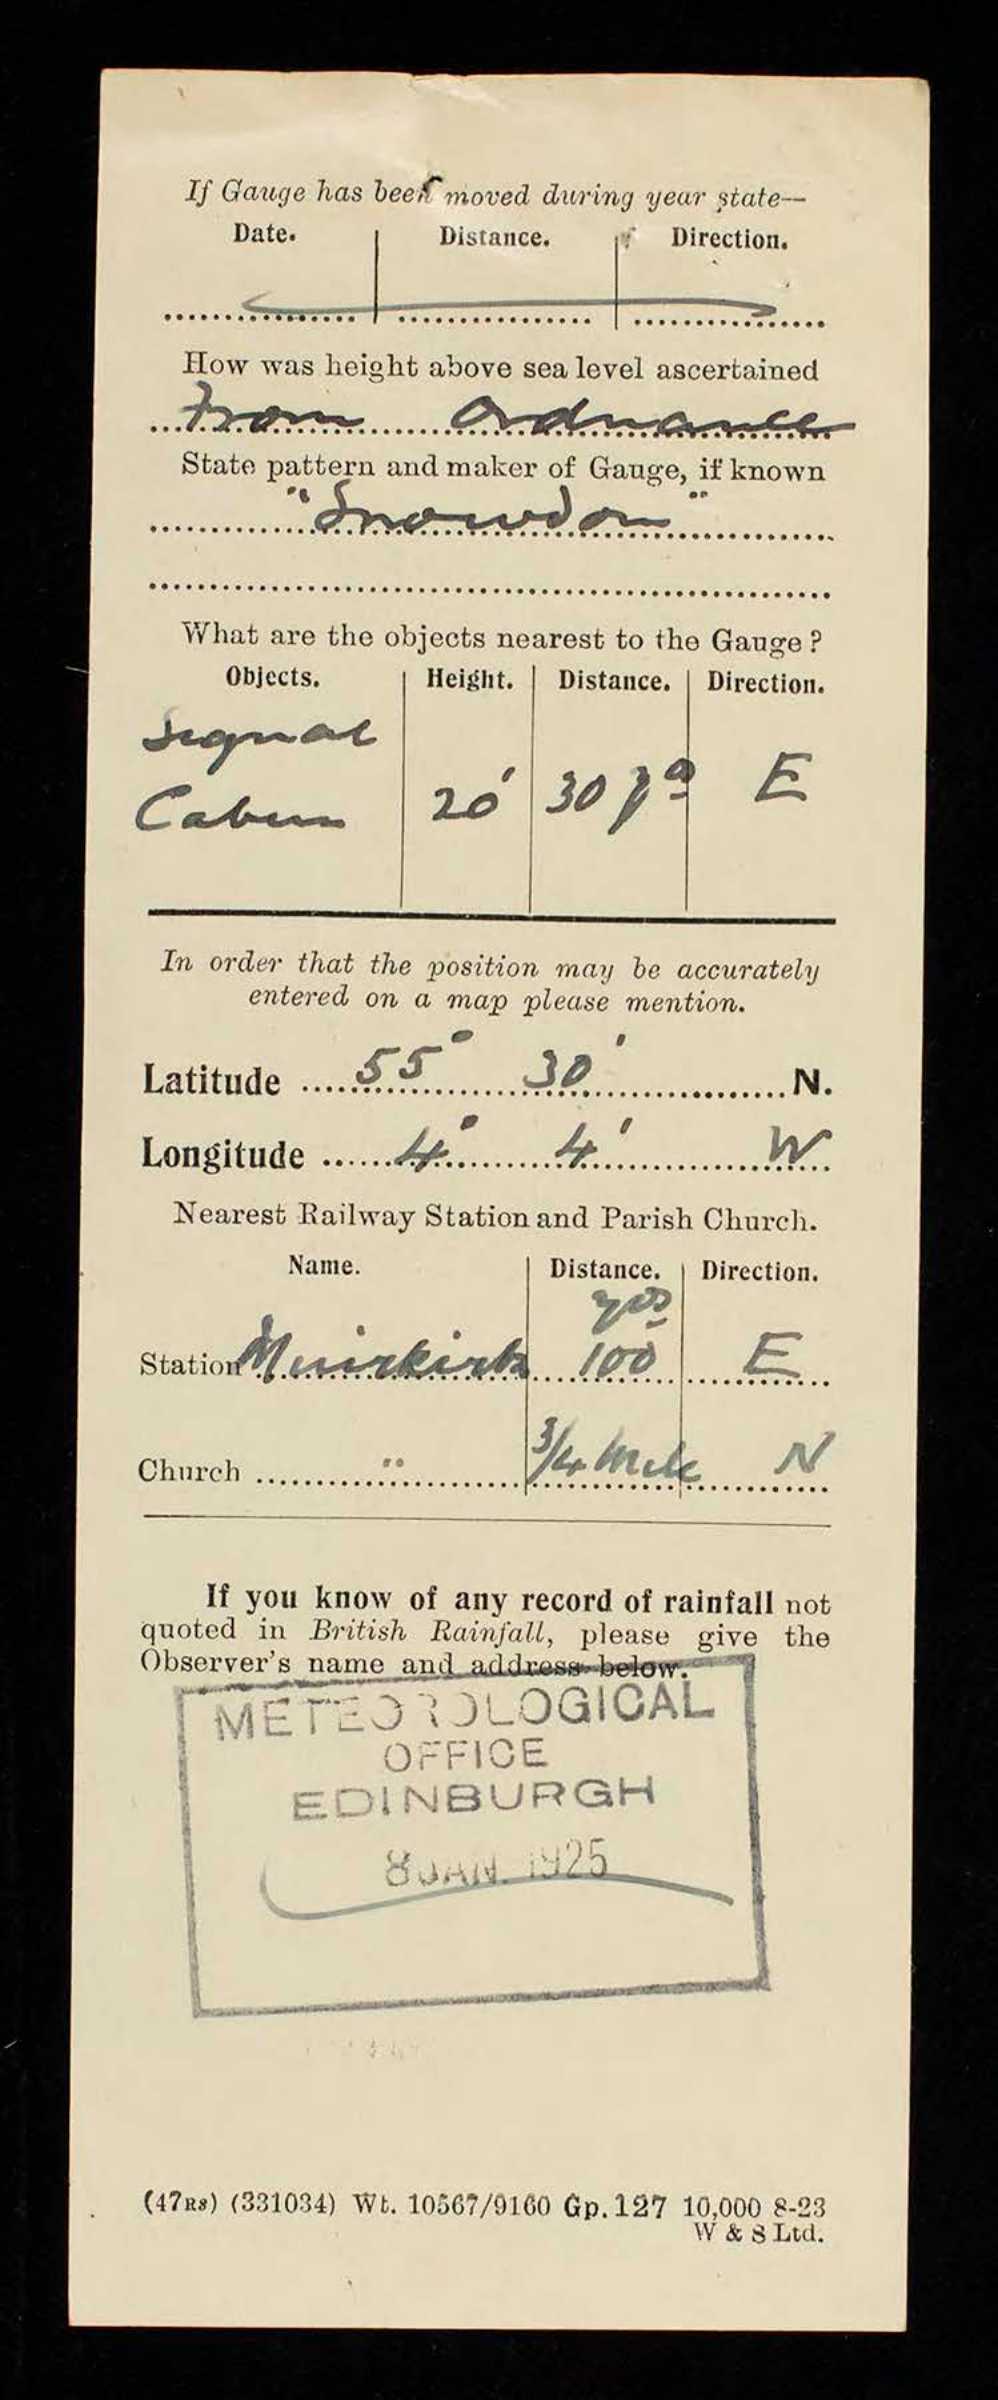 If Gauge has been moved during year state—
Date. Distance. Direction.
How was height above sea level ascertained
From Ordnance
State pattern and maker of Gauge, if known
"Snowdon"
What are the objects nearest to the Gauge?
Objects. Height. Distance. Direction.
Signal
Cabin 20' 30 yds E
In order that the position may be accurately
entered on a map please mention.
Latitude 55° 30' N.
Longitude 4° 4' W
Nearest Railway Station and Parish Church.
Name. Distance. Direction.
yds
Station Muirkirk 100 E
Church " 3/4 Mile N
If you know of any record of rainfall not
quoted in British Rainfall, please give the
Observer's name and address below.
METEOROLOGICAL
OFFICE
EDINBURGH
8 JAN. 1925
(47Rs) (331034) Wt. 10567/9160 Gp. 127 10,000 8-23
W & S Ltd.